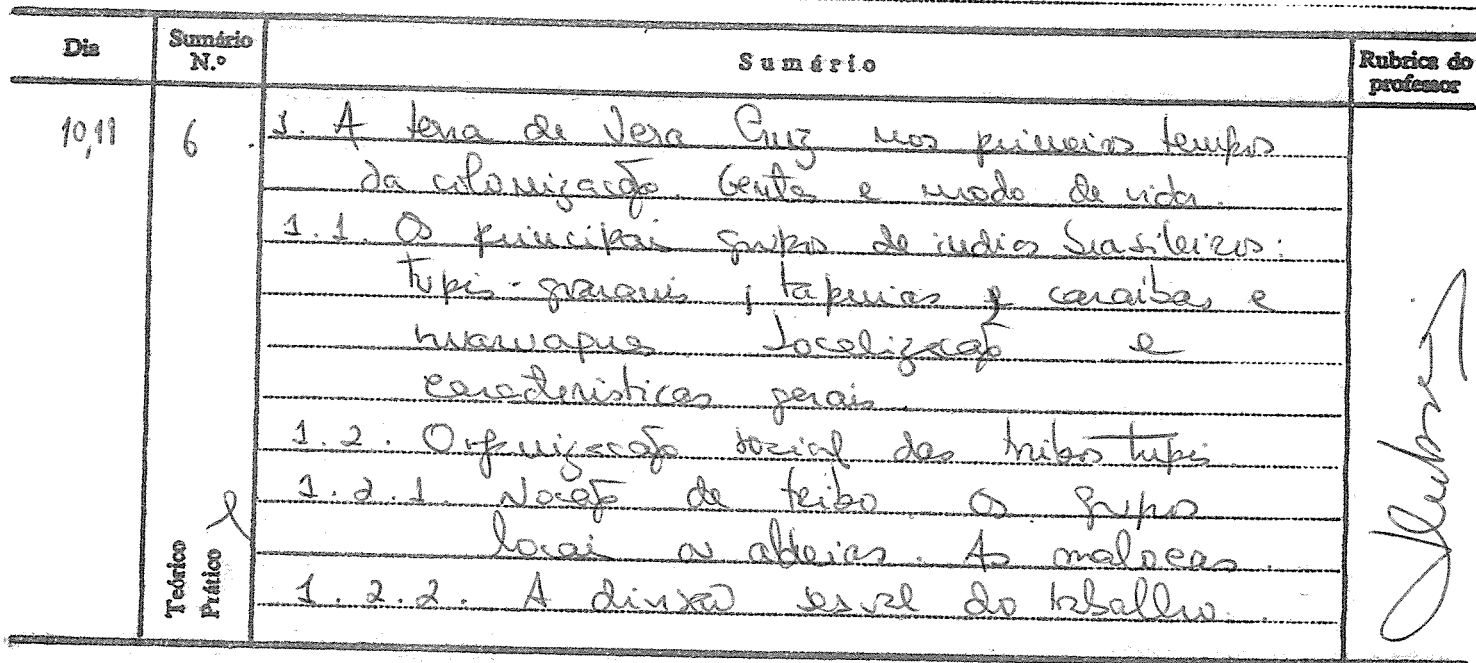 Dia
Sumário N.º
Sumário
Rubrica do professor
10,11
6
1. A terra de Vera Cruz nos primeiros tempos
da colonização. Gentes e modo de vida.
1.1. Os principais grupos de índios brasileiros:
tupis-guaranis, tapuias e caraíbas e
nuaruaques Localização e
características gerais.
1.2. Organização social das tribos tupis
1.2.1. Noção de tribo. Os grupos
locais ou aldeias. As malocas.
1.2.2. A divisão sexual do trabalho.
Teórico
Prático